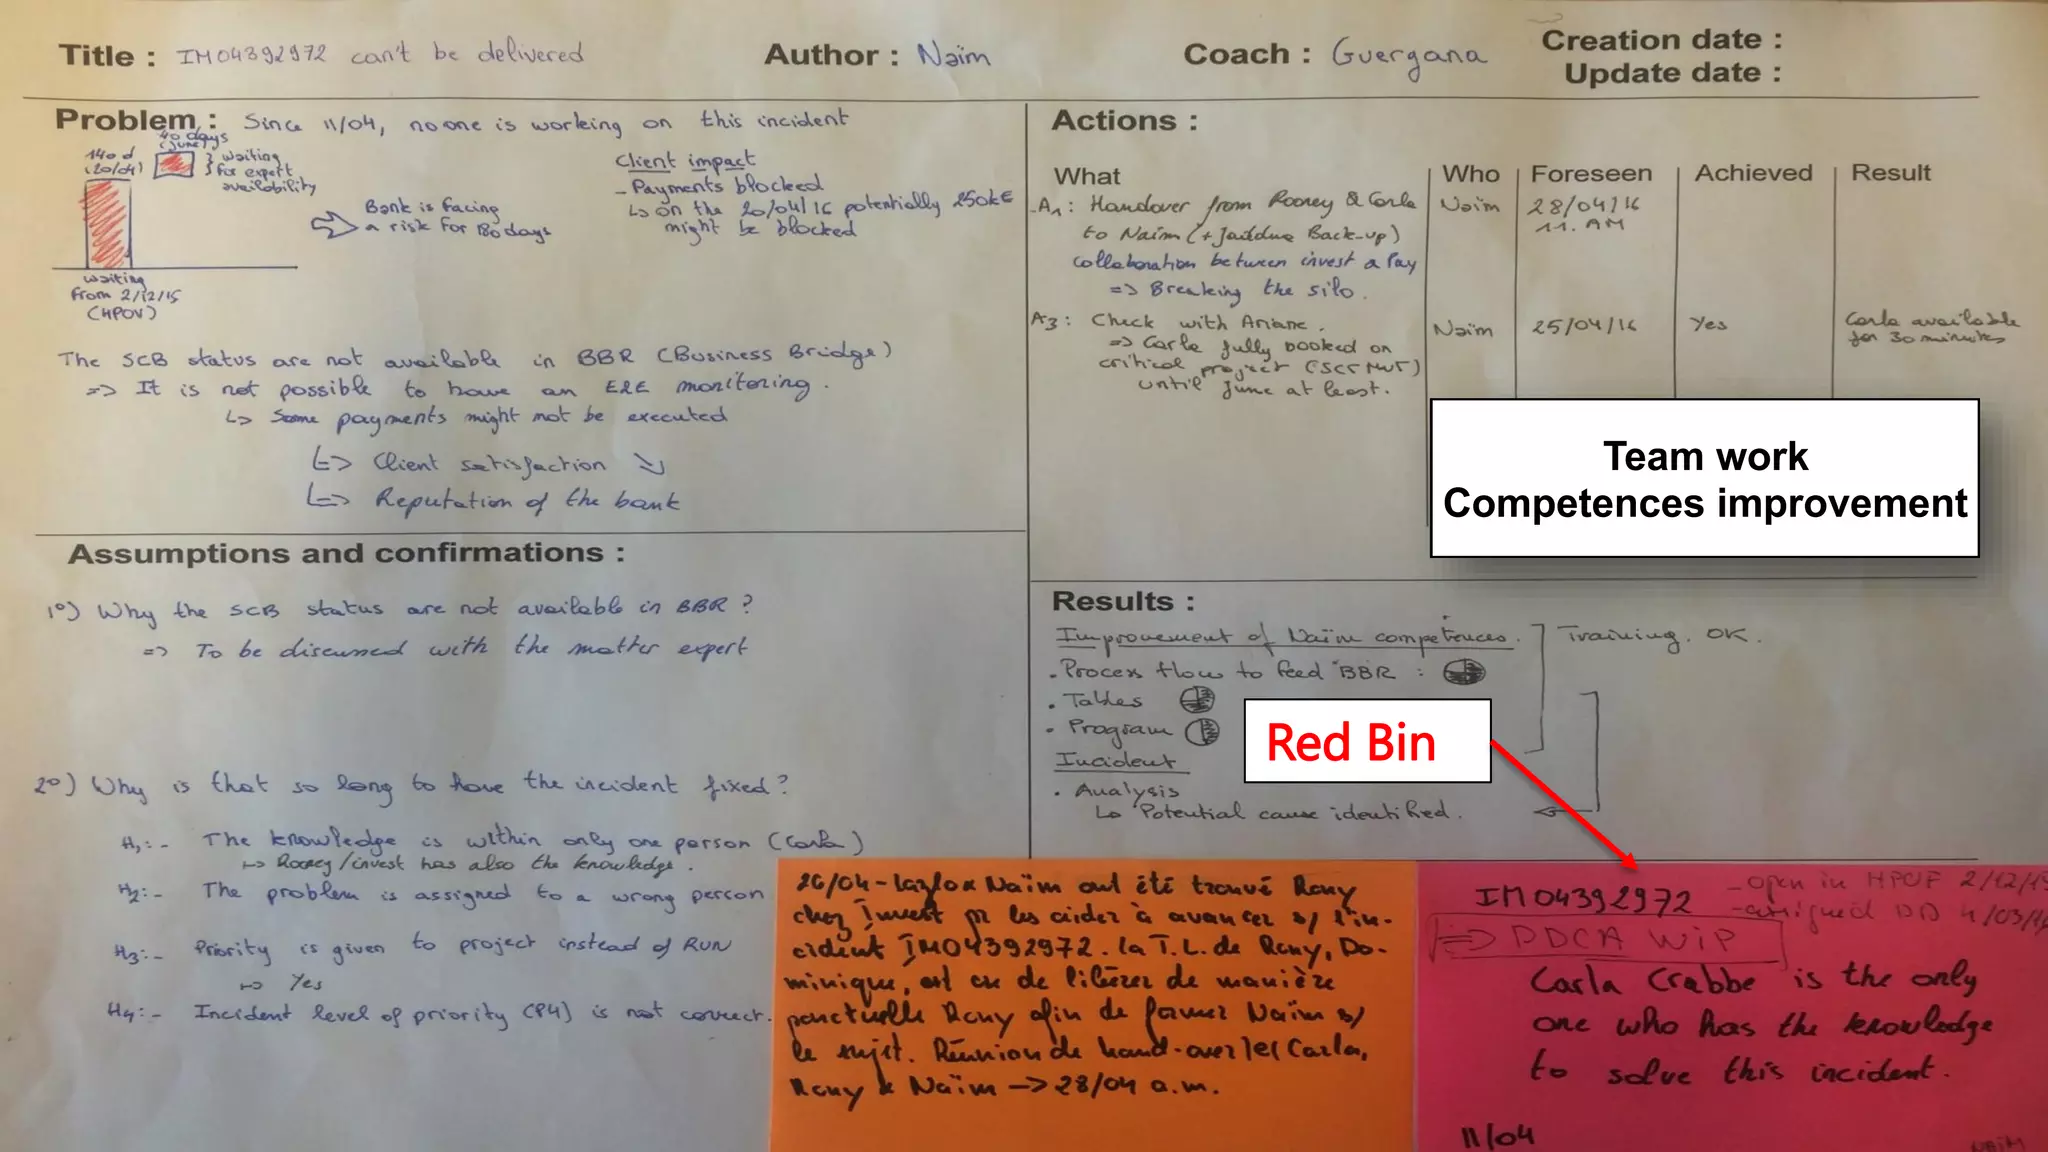 Title : IM04392972 can't be delivered
Author : Naïm
Coach : Guergana
Creation date :
Update date :
Problem : Since 11/04, no one is working on this incident
40 days
(June)
140 d
(20/04)
} waiting
for expert
availability
waiting
from 2/12/15
(HPOV)
Bank is facing
a risk for 180 days
Client impact
- Payments blocked
↳ on the 20/04/16 potentially 250k€
might be blocked
The SCB status are not available in BBR (Business Bridge)
=> It is not possible to have an E2E monitoring.
↳ Some payments might not be executed
↳> Client satisfaction ↘
↳> Reputation of the bank
Assumptions and confirmations :
1°) Why the SCB status are not available in BBR ?
=> To be discussed with the matter expert
2°) Why is that so long to have the incident fixed ?
H1: - The knowledge is within only one person (Carla)
↦ Rooney/invest has also the knowledge.
H2: - The problem is assigned to a wrong person
H3: - Priority is given to project instead of RUN
↦ Yes
H4: - Incident level of priority (P4) is not correct.
Actions :
What Who Foreseen Achieved Result
- A1: Handover from Rooney & Carla Naïm 28/04/16
to Naïm (+ Back-up) 11. AM
collaboration between invest & Pay
=> Breaking the silo.
A3: Check with Ariane. Naïm 25/04/16 Yes Carla available
=> Carla fully booked on for 30 minutes
critical project
until June at least.
Team work
Competences improvement
Results :
Improvement of Naïm competences. Training. OK.
. Process flow to feed BBR :
. Tables
. Program
Red Bin
Incident
. Analysis
↳ Potential cause identified.
26/04 - Naïm ont été trouvé Rony
chez Invest pr les aider à avancer s/ l'in-
cident IM04392972. la T.L. de Rony, Do-
minique, est ok de libérer de manière
ponctuelle Rony afin de former Naïm s/
le sujet. Réunion de hand-over Carla,
Rony & Naïm -> 28/04 a.m.
IM04392972
- open in 2/12/15
- assigned 4/03/16
=> PDCA WIP
Carla Crabbe is the only
one who has the knowledge
to solve this incident.
11/04
NAÏM